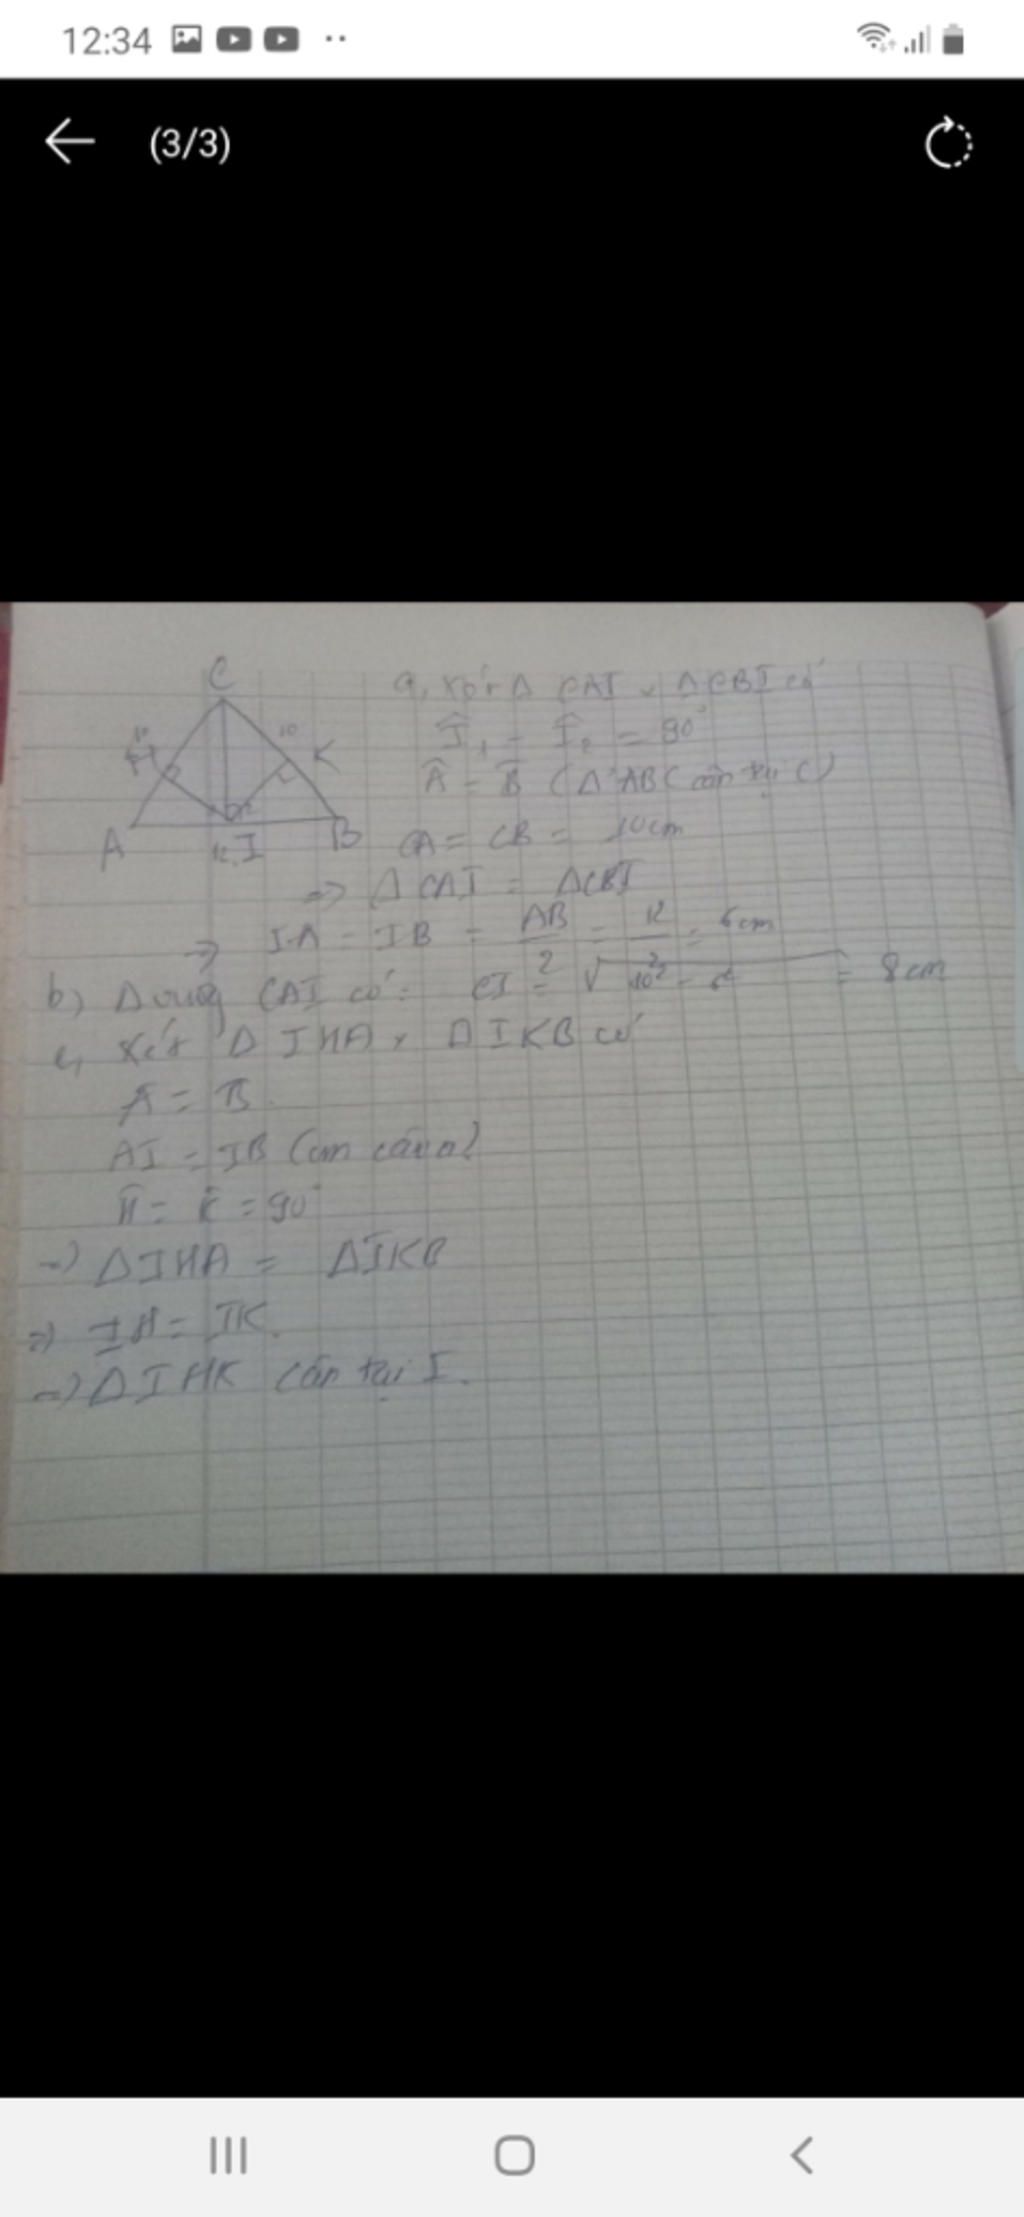 12:34
(3/3)
C
10
H
K
A
12
I
B
a, Xét Δ CAI, ΔCBI có
Î₁ = Î₂ = 90°
Â = B̂ (ΔABC cân tại C)
CA = CB = 10cm
=> ΔCAI = ΔCBI
=> IA = IB = AB/2 = 12/2 = 6cm
b) Δ vuông CAI có: CI = √10² - 6² = 8cm
c, Xét Δ IHA, ΔIKB có
Â = B̂
AI = IB (cm câu a)
Ĥ = K̂ = 90°
=> ΔIHA = ΔIKB
=> IH = IK.
=> ΔIHK cân tại I.